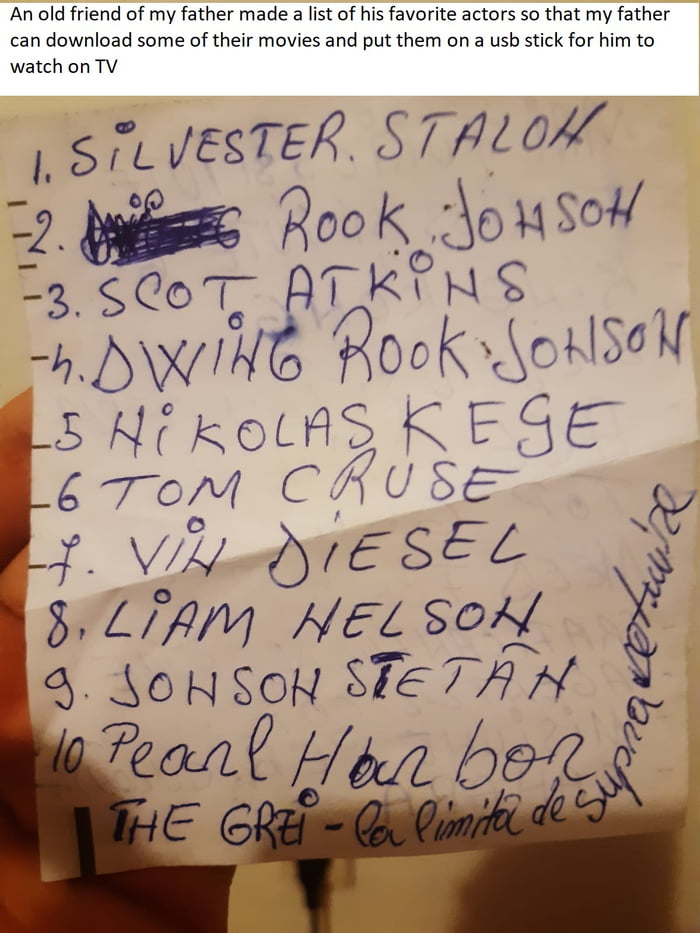 An old friend of my father made a list of his favorite actors so that my father
can download some of their movies and put them on a usb stick for him to
watch on TV
1. SiLVESTER. STALON
2. ROOK JONSON
3. SCOT ATKiNS
4. DWiNG ROOK JONSON
5 NiKOLAS KEGE
6 TOM CRUSE
7. ViN DiESEL
8. LiAM NELSON
9. JONSON STETÂN
10 Pearl Harbor
THE GREi - la limită de supraviețuire